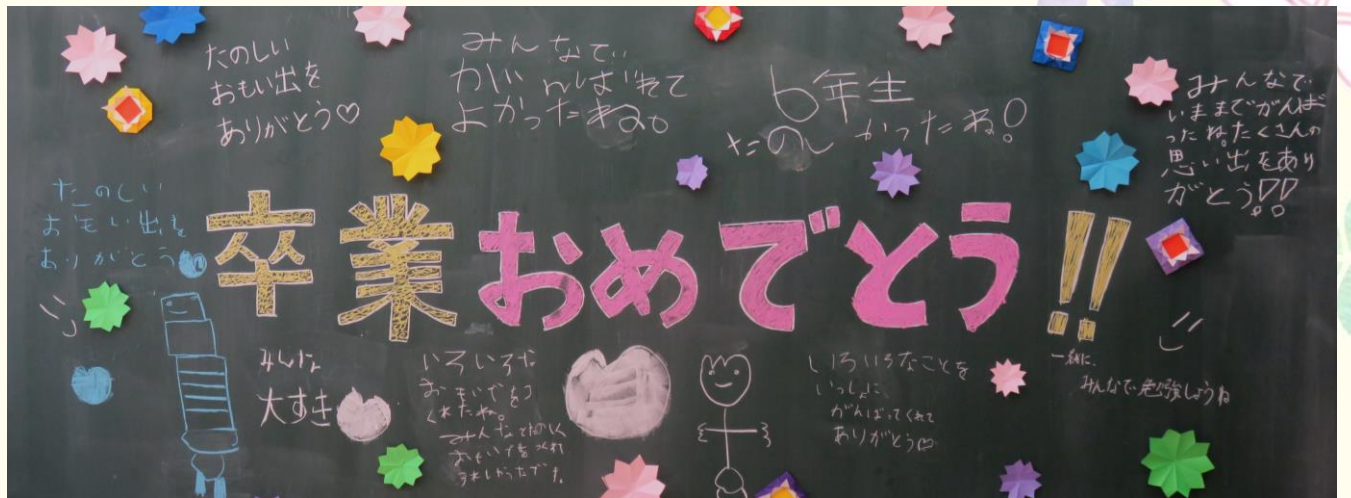 たのしい
おもい出を
ありがとう♡
みんなで
がんばれて
よかったね。
6年生
たのしかったね!
みんなで
いままでがんば
ったね。たくさんの
思い出をあり
がとう♡♡
たのしい
おもい出を
ありがとう
卒業おめでとう!!
みんな
大すき
いろいろな
おもいでをつ
くれたね。
みんなでたのしく
おもいでをつくれ
うれしかったです。
いろいろなことを
いっしょに
がんばってくれて
ありがとう♡
一緒に、
みんなで勉強しようね